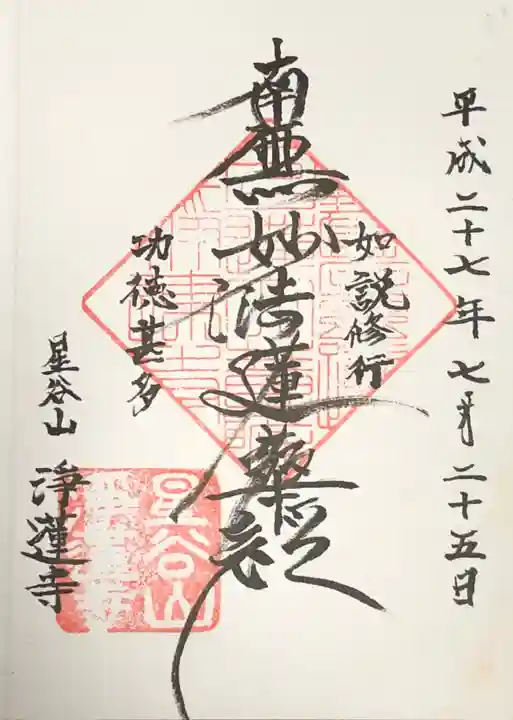 平成二十七年七月二十五日
如説修行
南無妙法蓮華経
功徳甚多
星谷山 浄蓮寺
星谷山